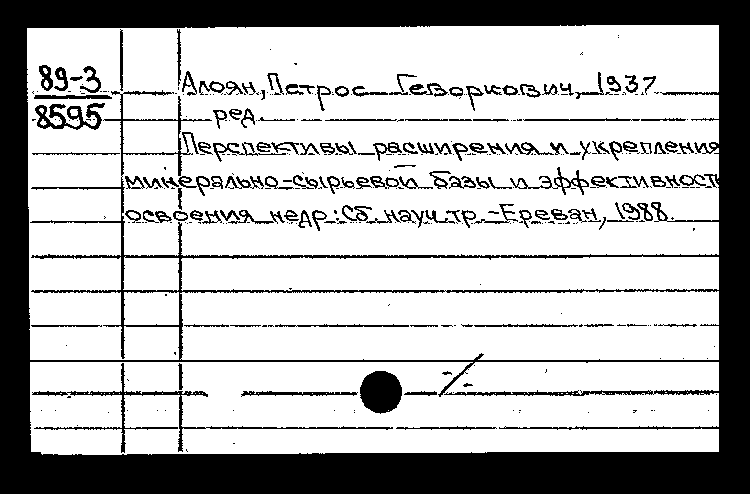 89-3
8595
Алоян, Петрос Геворкович, 1937
ред.
Перспективы расширения и укрепления
минерально-сырьевой базы и эффективност
освоения недр: Сб. науч. тр. - Ереван, 1988.